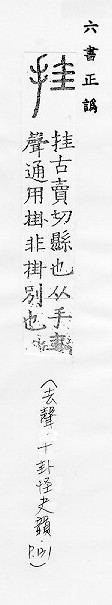 六書正譌
挂
挂古賣切縣也从手
聲通用掛非掛別也
(去聲.十卦怪夬韻.P.131)